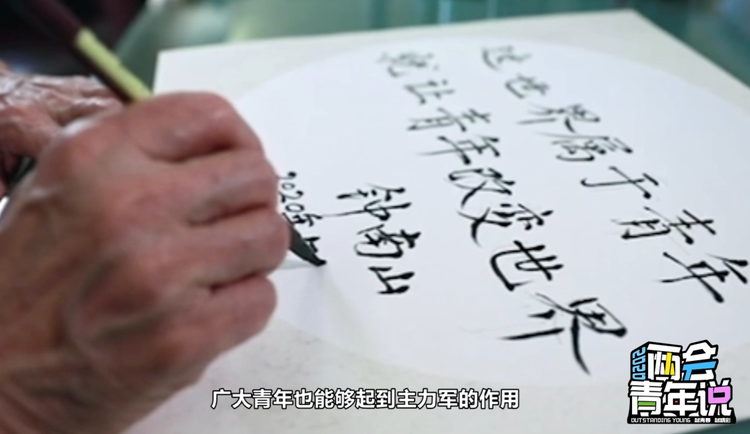 这世界属于青年
就让青年改变世界
钟南山
2020年
广大青年也能够起到主力军的作用
2020
两会
青年说
OUTSTANDING YOUNG